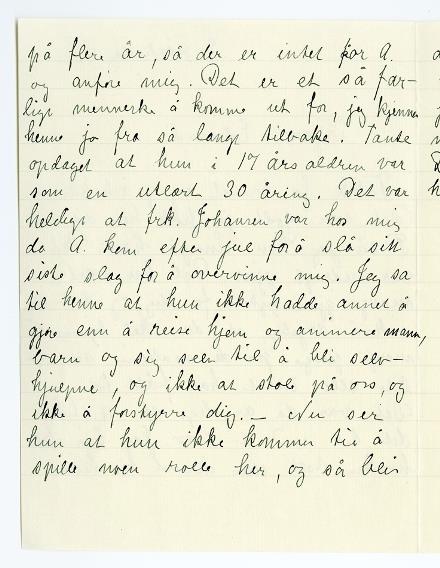 på flere år, så der er intet for A.
og anføre mig. Det er et så far-
ligt menneske å komme ut for, jeg kjenner
henne jo fra så langt tilbake. Tante
opdaget at hun i 17 årsaldren var
som en utlært 30 åring. Det var
heldigt at frk. Johansen var hos mig
da A. kom efter jul for å slå sitt
siste slag for å overvinne mig. Jeg sa
til henne at hun ikke hadde annet å
gjøre enn å reise hjem og animere mann,
barn og sig selv til å bli selv-
hjulpne, og ikke at stole på oss, og
ikke å forstyrre dig. – Nu ser
hun at hun ikke kommer til å
spille noen rolle her, og så blir